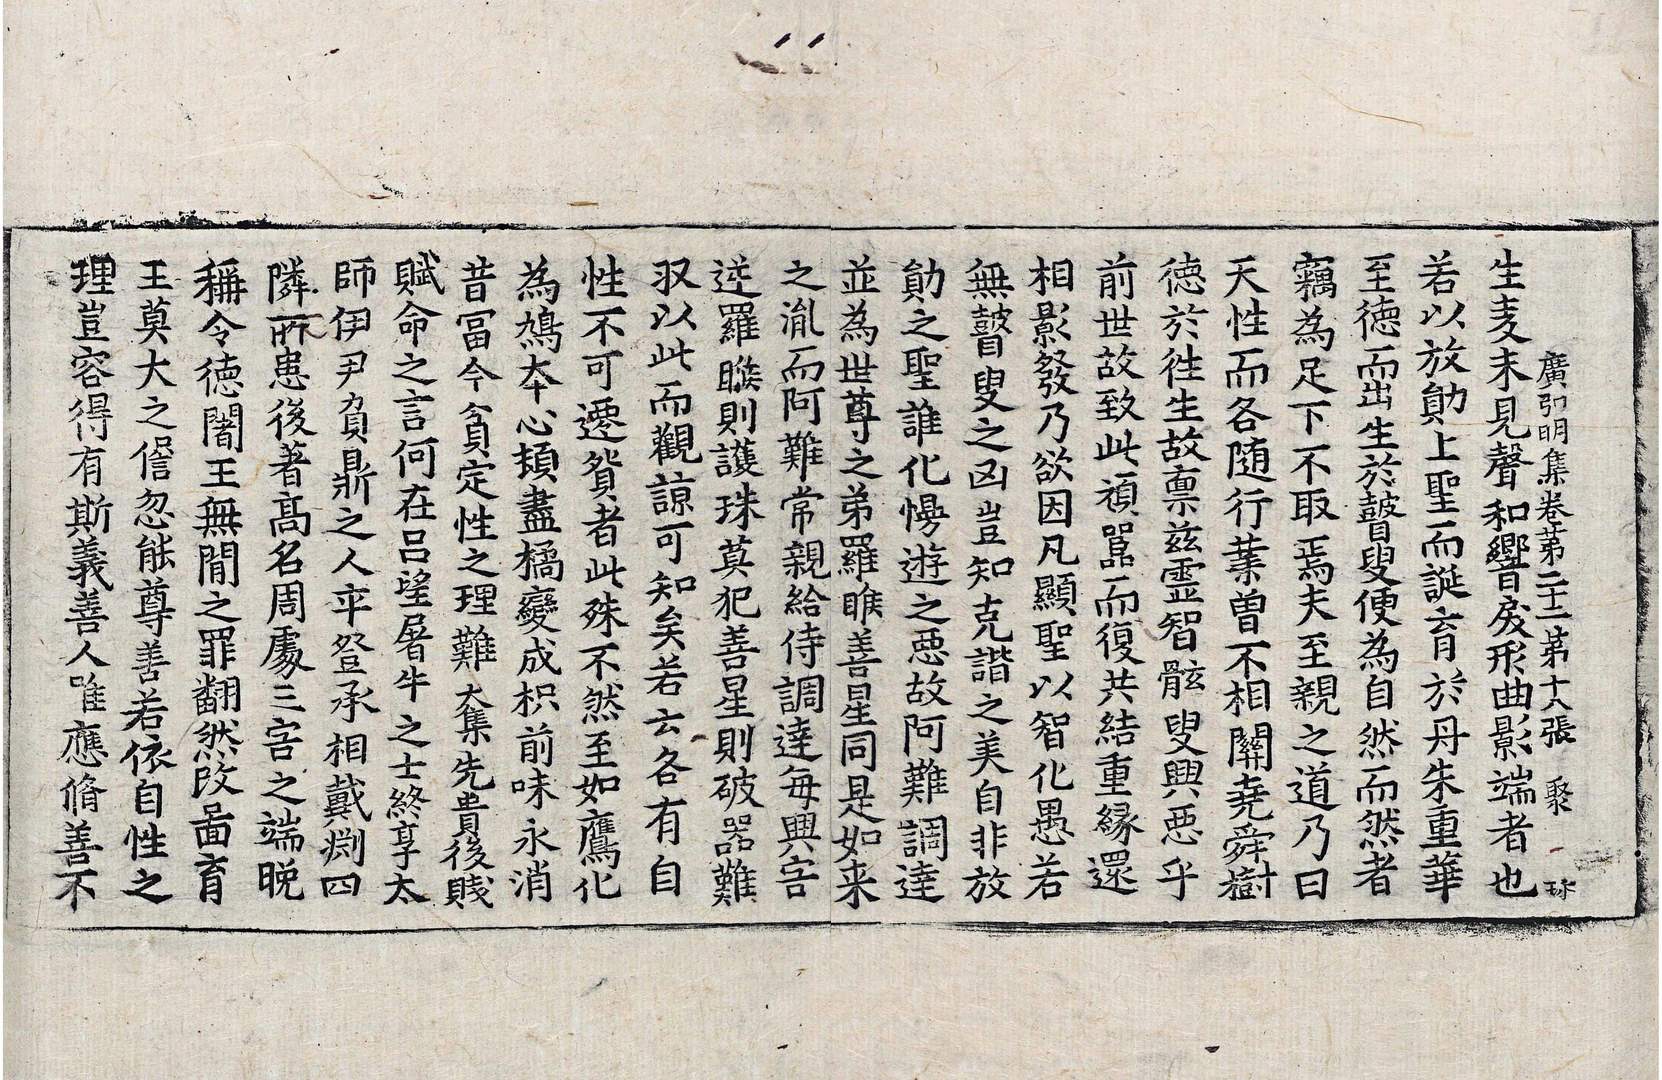 廣弘明集卷第二十二 第十八張 聚 𤣥
生麦未見聲和響戾形曲影端者也
若以放勛上聖而誕育於丹朱重華
至德而出生於瞽叟便為自然而然者
竊為足下不取焉夫至親之道乃曰
天性而各随行業曽不相關堯舜樹
德於徃生故禀兹霊智骸叟興惡乎
前世故致此頑嚚而復共結重縁還
相影發乃欲因凡顯聖以智化愚若
無瞽叟之凶豈知克諧之美自非放
勛之聖誰化慢遊之惡故阿難調達
並為世尊之弟羅睺善星同是如来
之胤而阿難常親給侍調達毎興害
逆羅睺則護珠莫犯善星則破器難
収以此而觀諒可知矣若云各有自
性不可遷貿者此殊不然至如鷹化
為鳩夲心頓盡橘變成枳前味永消
昔冨今貧定性之理難 大集先貴後賎
賦命之言何在吕望屠牛之士終享太
師伊尹負鼎之人卒登承相戴渕四
隣所患後著髙名周處三害之端晩
稱令德闍王無間之罪翻然改啚育
王莫大之𠍴忽能尊善若依自性之
理豈容得有斯義善人唯應脩善不